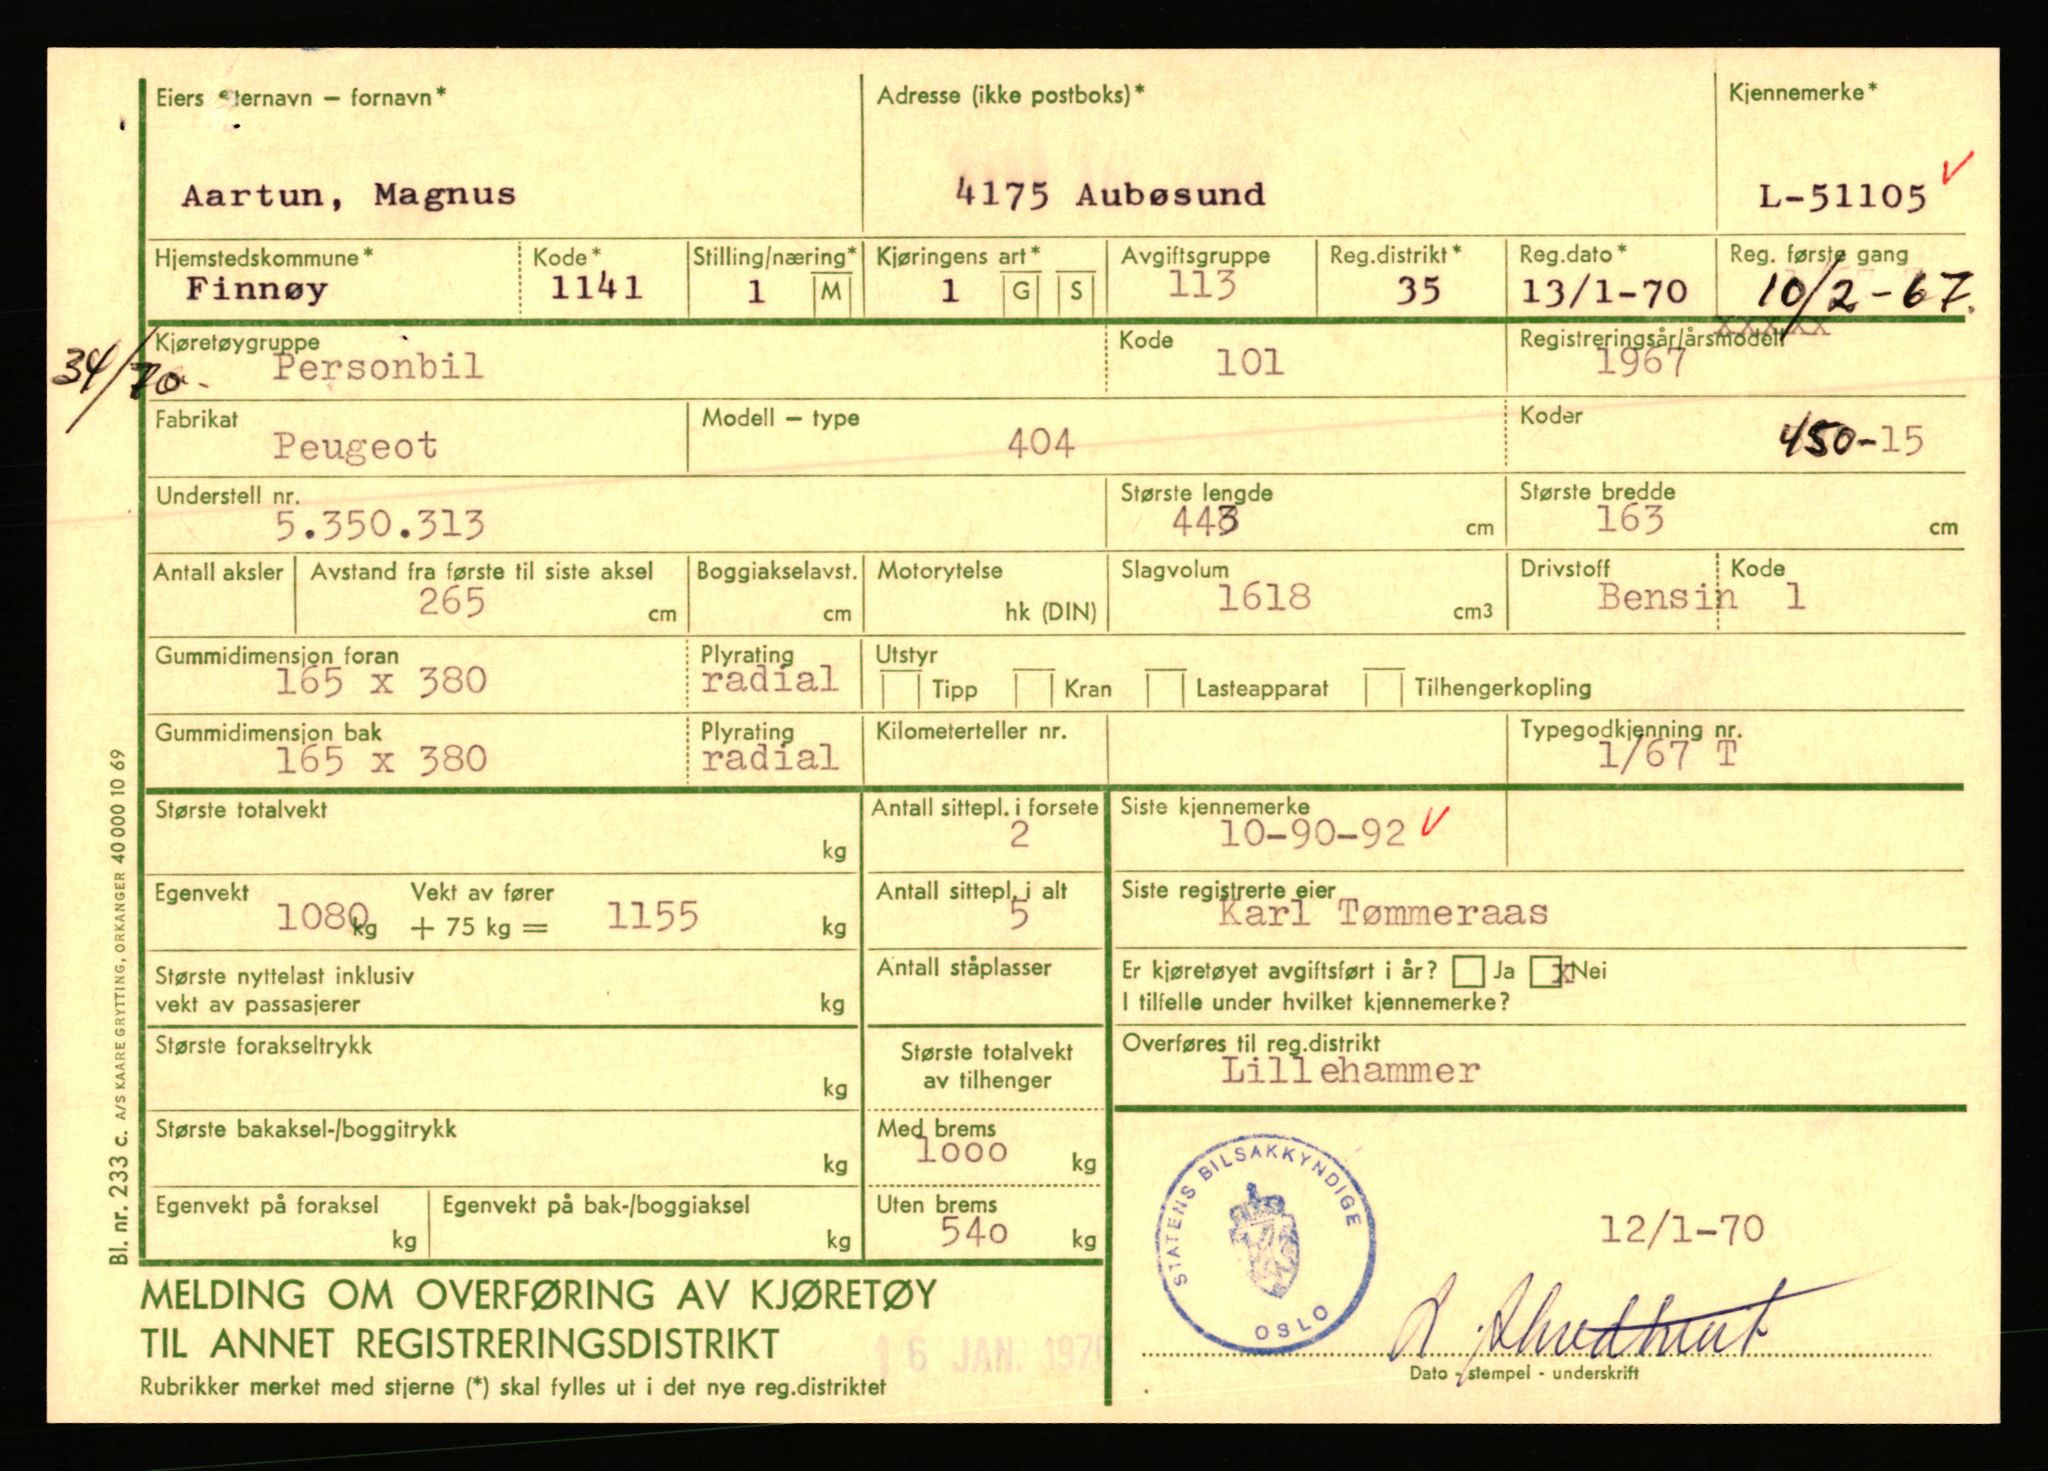 Eiers etternavn – fornavn*
Aartun, Magnus
Adresse (ikke postboks)*
4175 Aubøsund
Kjennemerke*
L-51105
Hjemstedskommune*
Finnøy
Kode*
1141
Stilling/næring*
1 M
Kjøringens art*
1 G S
Avgiftsgruppe
113
Reg.distrikt*
35
Reg.dato*
13/1-70
Reg. første gang
10/2-67.
xxxxx
34/70.
Kjøretøygruppe
Personbil
Kode
101
Registreringsår/årsmodell
1967
Fabrikat
Peugeot
Modell – type
404
Koder
450-15
Understell nr.
5.350.313
Største lengde
443 cm
Største bredde
163 cm
Antall aksler
Avstand fra første til siste aksel
265 cm
Boggiakselavst.
cm
Motorytelse
hk (DIN)
Slagvolum
1618 cm3
Drivstoff
Bensin
Kode
1
Gummidimensjon foran
165 x 380
Plyrating
radial
Utstyr
Tipp Kran Lasteapparat Tilhengerkopling
Gummidimensjon bak
165 x 380
Plyrating
radial
Kilometerteller nr.
Typegodkjenning nr.
1/67 T
Største totalvekt
kg
Antall sittepl. i forsete
2
Siste kjennemerke
10-90-92
Egenvekt
1080 kg
Vekt av fører
+ 75 kg = 1155 kg
Antall sittepl. i alt
5
Siste registrerte eier
Karl Tømmeraas
Største nyttelast inklusiv
vekt av passasjerer kg
Antall ståplasser
Er kjøretøyet avgiftsført i år? Ja x Nei
I tilfelle under hvilket kjennemerke?
Største forakseltrykk
kg
Største totalvekt
av tilhenger
Overføres til reg.distrikt
Lillehammer
Største bakaksel-/boggitrykk
kg
Med brems
1000 kg
Egenvekt på foraksel
kg
Egenvekt på bak-/boggiaksel
kg
Uten brems
540 kg
STATENS BILSAKKYNDIGE
OSLO
12/1-70
Dato - stempel - underskrift
MELDING OM OVERFØRING AV KJØRETØY
TIL ANNET REGISTRERINGSDISTRIKT
16 JAN. 1970
Rubrikker merket med stjerne (*) skal fylles ut i det nye reg.distriktet
Bl. nr. 233 c. A/S KAARE GRYTTING, ORKANGER 40 000 10 69